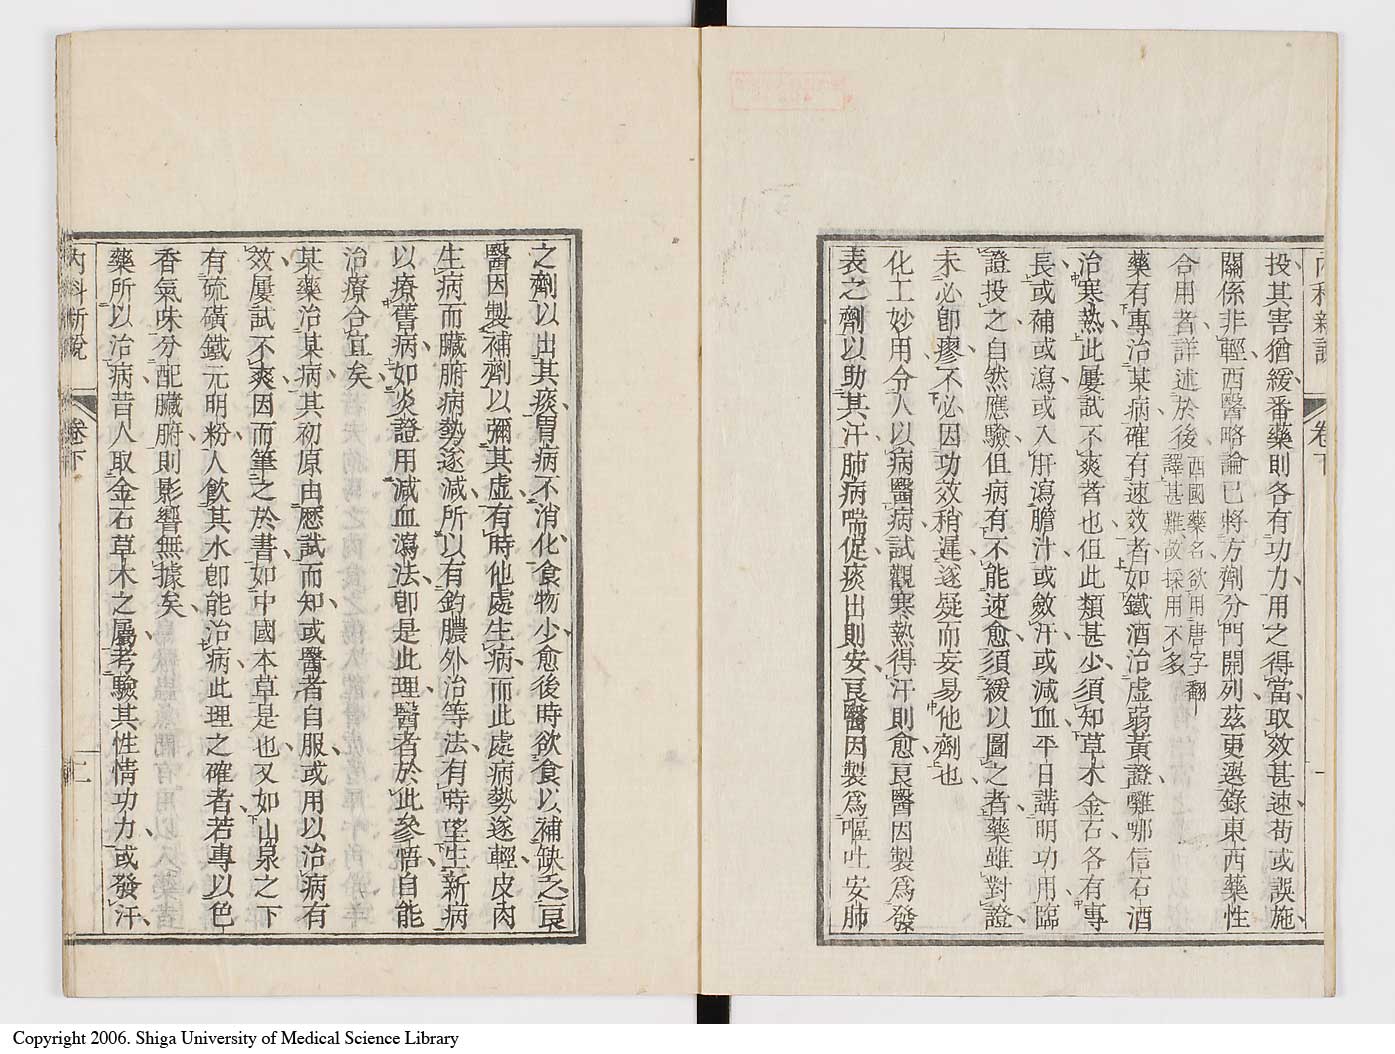 內科新說
卷下
一
投其害猶緩番藥則各有功力用之得當取效甚速苟或誤施
關係非輕西醫略論已將方劑分門開列茲更選錄東西藥性
合用者詳述於後西國藥名欲用唐字翻
譯甚難故採用不多
藥有專治某病確有速效者如鐵酒治虛弱黃證囉哪信石酒
治寒熱此屢試不爽者也但此類甚少須知草木金石各有專
長或補或瀉或入肝瀉膽汁或斂汗或減血平日講明功用臨
證投之自然應驗但病有不能速愈須緩以圖之者藥雖對證
未必卽瘳不必因功效稍遲遂疑而妄易他劑也
化工妙用令人以病醫病試觀寒熱得汗則愈良醫因製爲發
表之劑以助其汗肺病喘促痰出則安良醫因製爲嘔吐安肺
之劑以出其痰胃病不消化食物少愈後時欲食以補缺乏良
醫因製補劑以彌其虛有時他處生病而此處病勢遂輕皮肉
生病而臟腑病勢遂減所以有釣膿外治等法有時望生新病
以療舊病如炎證用減血瀉法卽是此理醫者於此參悟自能
治療合宜矣
某藥治某病其初原由歷試而知或醫者自服或用以治病有
效屢試不爽因而筆之於書如中國本草是也又如山泉之下
有硫磺鐵元明粉人飮其水卽能治病此理之確者若專以色
香氣味分配臟腑則影響無據矣
藥所以治病昔人取金石草木之屬考驗其性情功力或發汗
內科新說
卷下
二
Copyright 2006. Shiga University of Medical Science Library